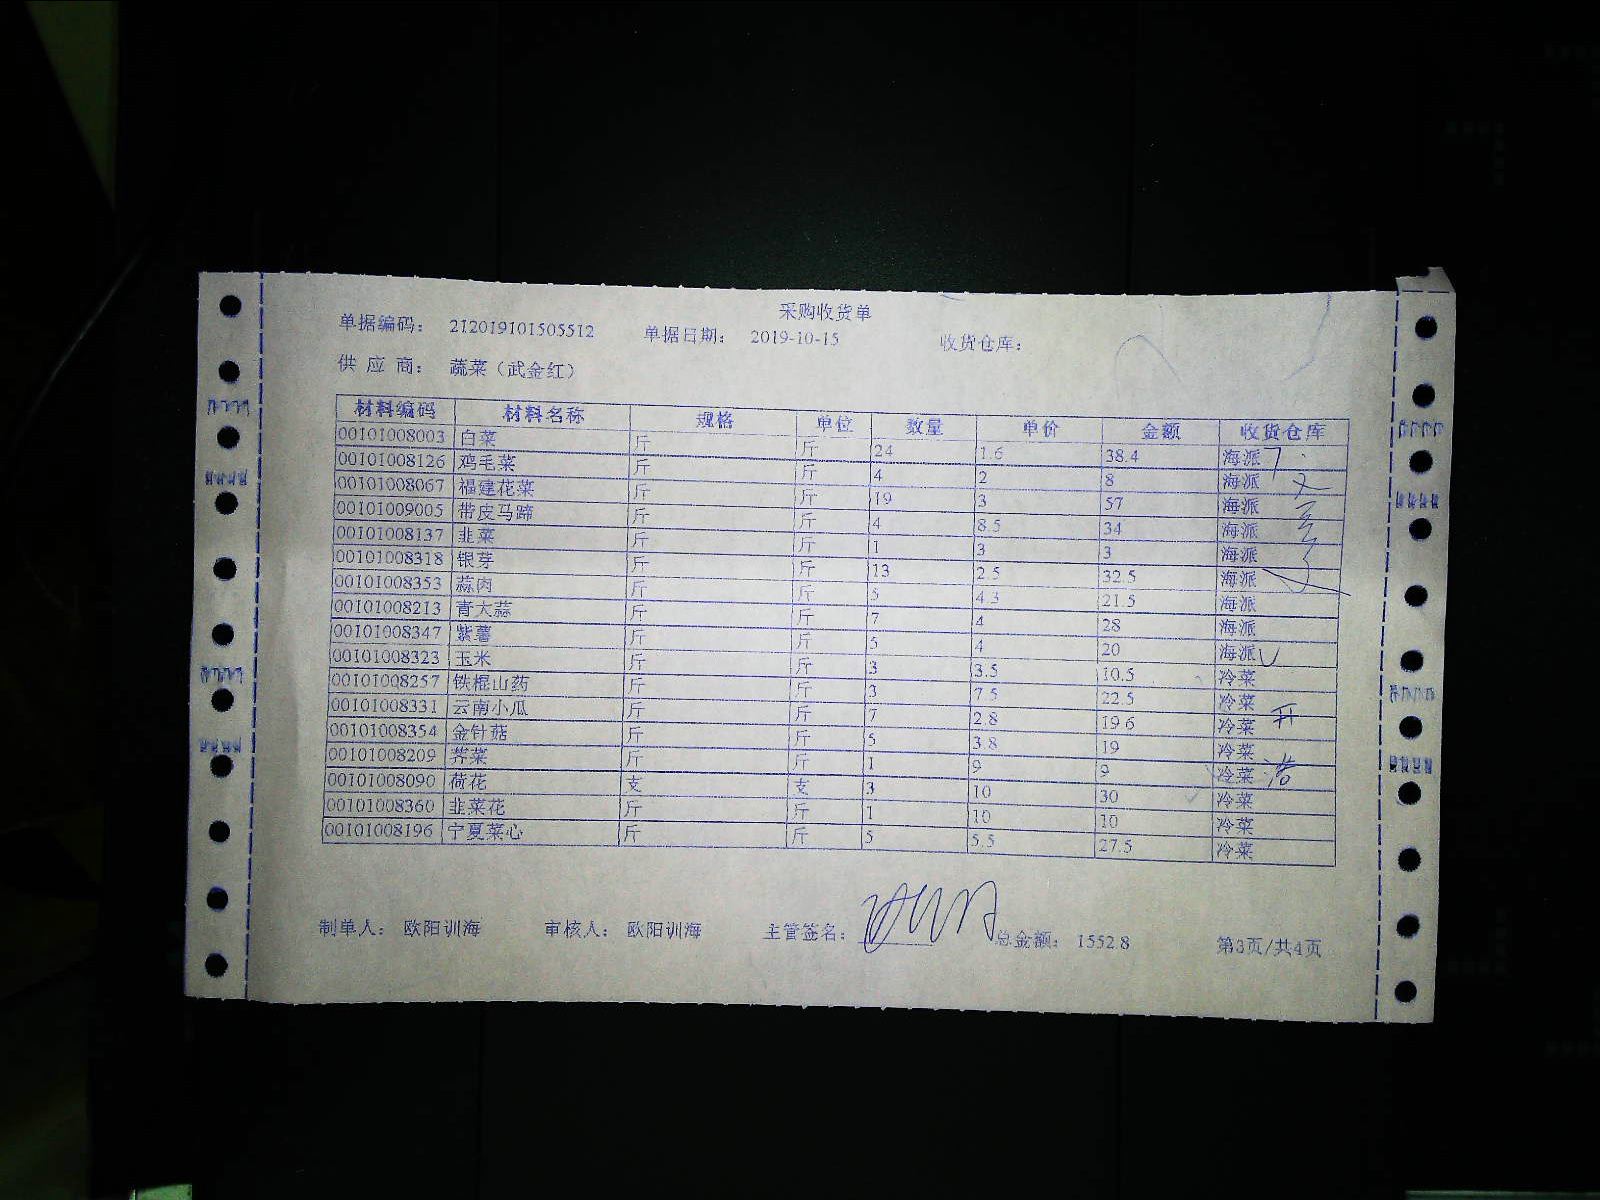 采购收货单
单据编码： 212019101505512 单据日期： 2019-10-15 收货仓库：
供 应 商： 蔬菜（武金红）
材料编码 材料名称 规格 单位 数量 单价 金额 收货仓库
00101008003 白菜 斤 斤 24 1.6 38.4 海派
00101008126 鸡毛菜 斤 斤 4 2 8 海派
00101008067 福建花菜 斤 斤 19 3 57 海派
00101009005 带皮马蹄 斤 斤 4 8.5 34 海派
00101008137 韭菜 斤 斤 1 3 3 海派
00101008318 银芽 斤 斤 13 2.5 32.5 海派
00101008353 蒜肉 斤 斤 5 4.3 21.5 海派
00101008213 青大蒜 斤 斤 7 4 28 海派
00101008347 紫薯 斤 斤 5 4 20 海派
00101008323 玉米 斤 斤 3 3.5 10.5 冷菜
00101008257 铁棍山药 斤 斤 3 7.5 22.5 冷菜
00101008331 云南小瓜 斤 斤 7 2.8 19.6 冷菜
00101008354 金针菇 斤 斤 5 3.8 19 冷菜
00101008209 荠菜 斤 斤 1 9 9 冷菜
00101008090 荷花 支 支 3 10 30 冷菜
00101008360 韭菜花 斤 斤 1 10 10 冷菜
00101008196 宁夏菜心 斤 斤 5 5.5 27.5 冷菜
制单人： 欧阳训海 审核人： 欧阳训海 主管签名： 总金额： 1552.8 第3页/共4页